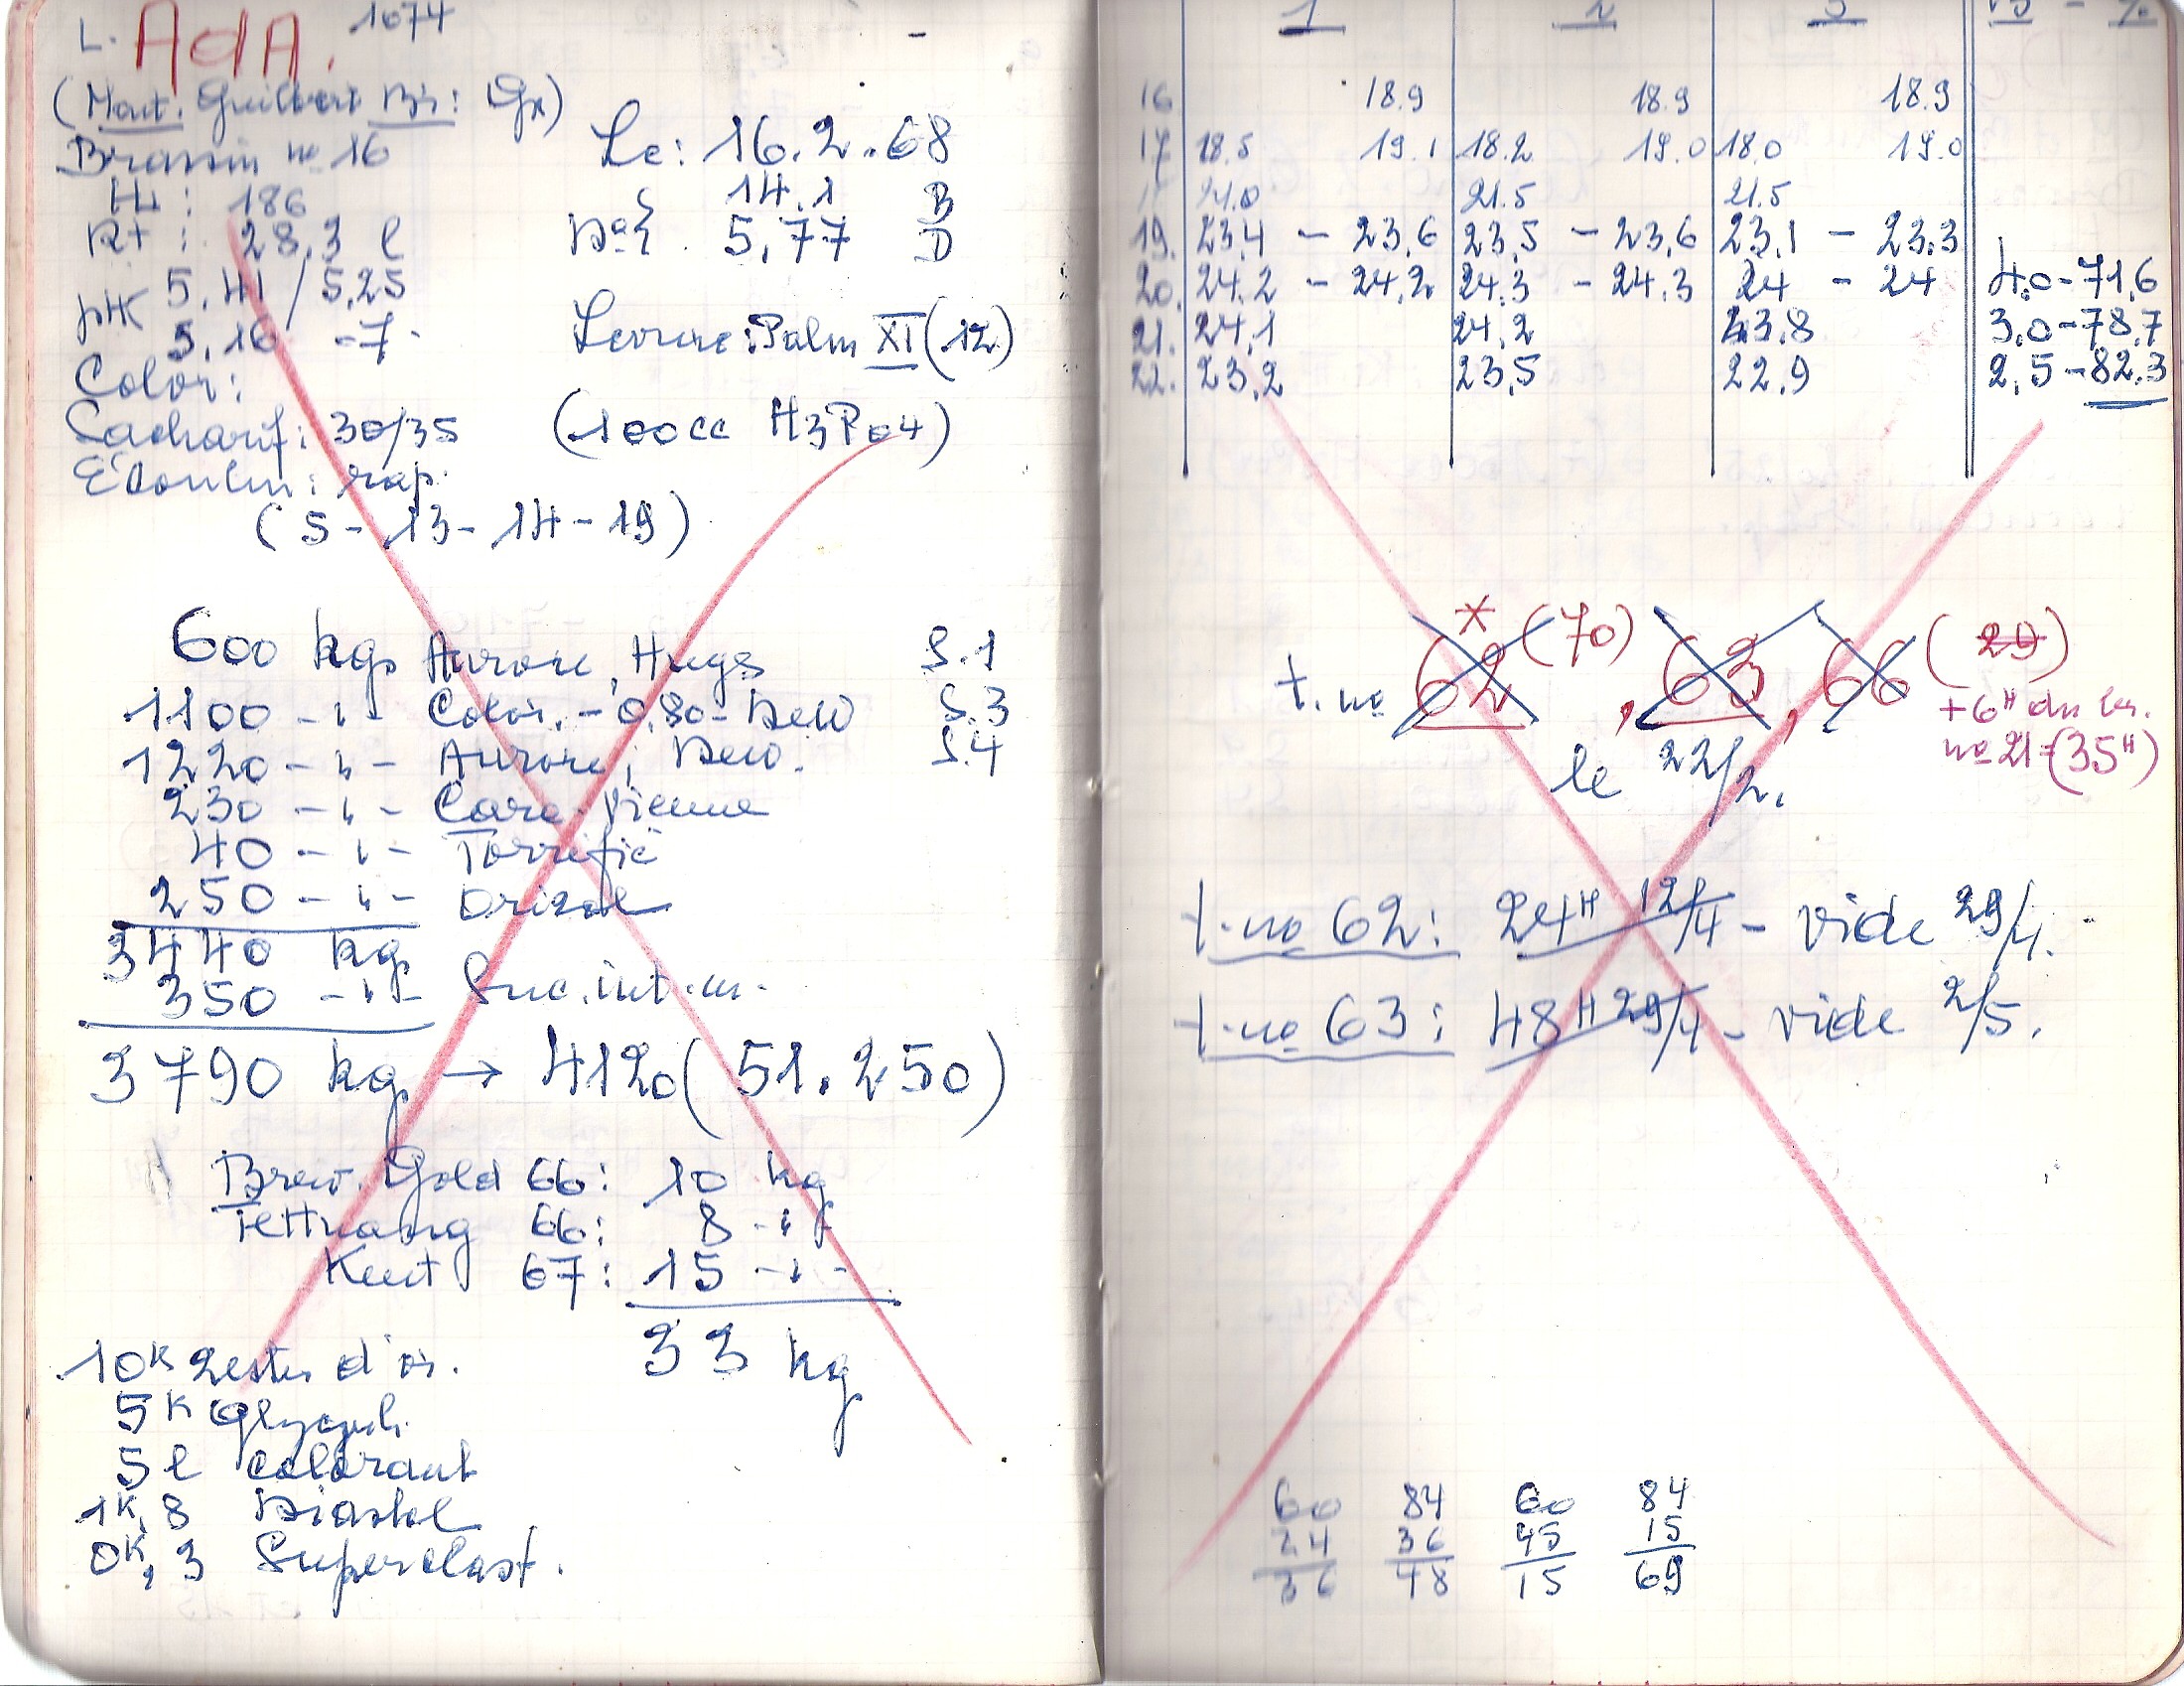 L. AdA. 1674
(Mout. Guilbert Br: Gx)
Brassin no 16
Le: 16.2.68
Hl: 186
14.1 B
Rt: 28,3 l
Do 5,77 D
pH 5,41 / 5,25
5,16 -7-
Levure: Palm XI (12)
Color:
Sacharif: 30/35 (100cc H3Po4)
Ecoulm: rap.
(5-13-14-19)
600 kgs Aurore, Huys S.1
1100 -"- Color. - 0,80 - Dew S.3
1220 -"- Aurore, Dew. S.4
230 -"- Cara-Vienne
40 -"- Torrefié
250 -"- Orizal
3440 kg
350 -"- Suc. int.
3790 kg → 4120 (51.250)
Brew. Gold 66: 10 kg
Tettnang 66: 8 -"-
Kent 67: 15 -"-
33 kg
10K Zestes d'or.
5K
5l Colorant
1K,8 Diastol
0K,3 Superclast.
1 2 3
16 18.9 18.9 18.9
17 18.5 19.1 18.2 19.0 18.0 19.0
21.0 21.5 21.5
19. 23,4 - 23,6 23,5 - 23,6 23,1 - 23.3
20. 24.2 - 24,2 24.3 - 24.3 24 - 24 4.0-71,6
21. 24,1 24,2 23,8 3,0-78,7
22. 23,2 23,5 22,9 2,5-82,3
*
t. no 62 (70), 63, 66 (29)
+6H du br.
no 21 = (35H)
le 22/2.
t. no 62: 24H 12/4 - vide 29/4.
t. no 63: 48H 29/4 - vide 2/5.
60 84 60 84
24 36 45 15
36 48 15 69